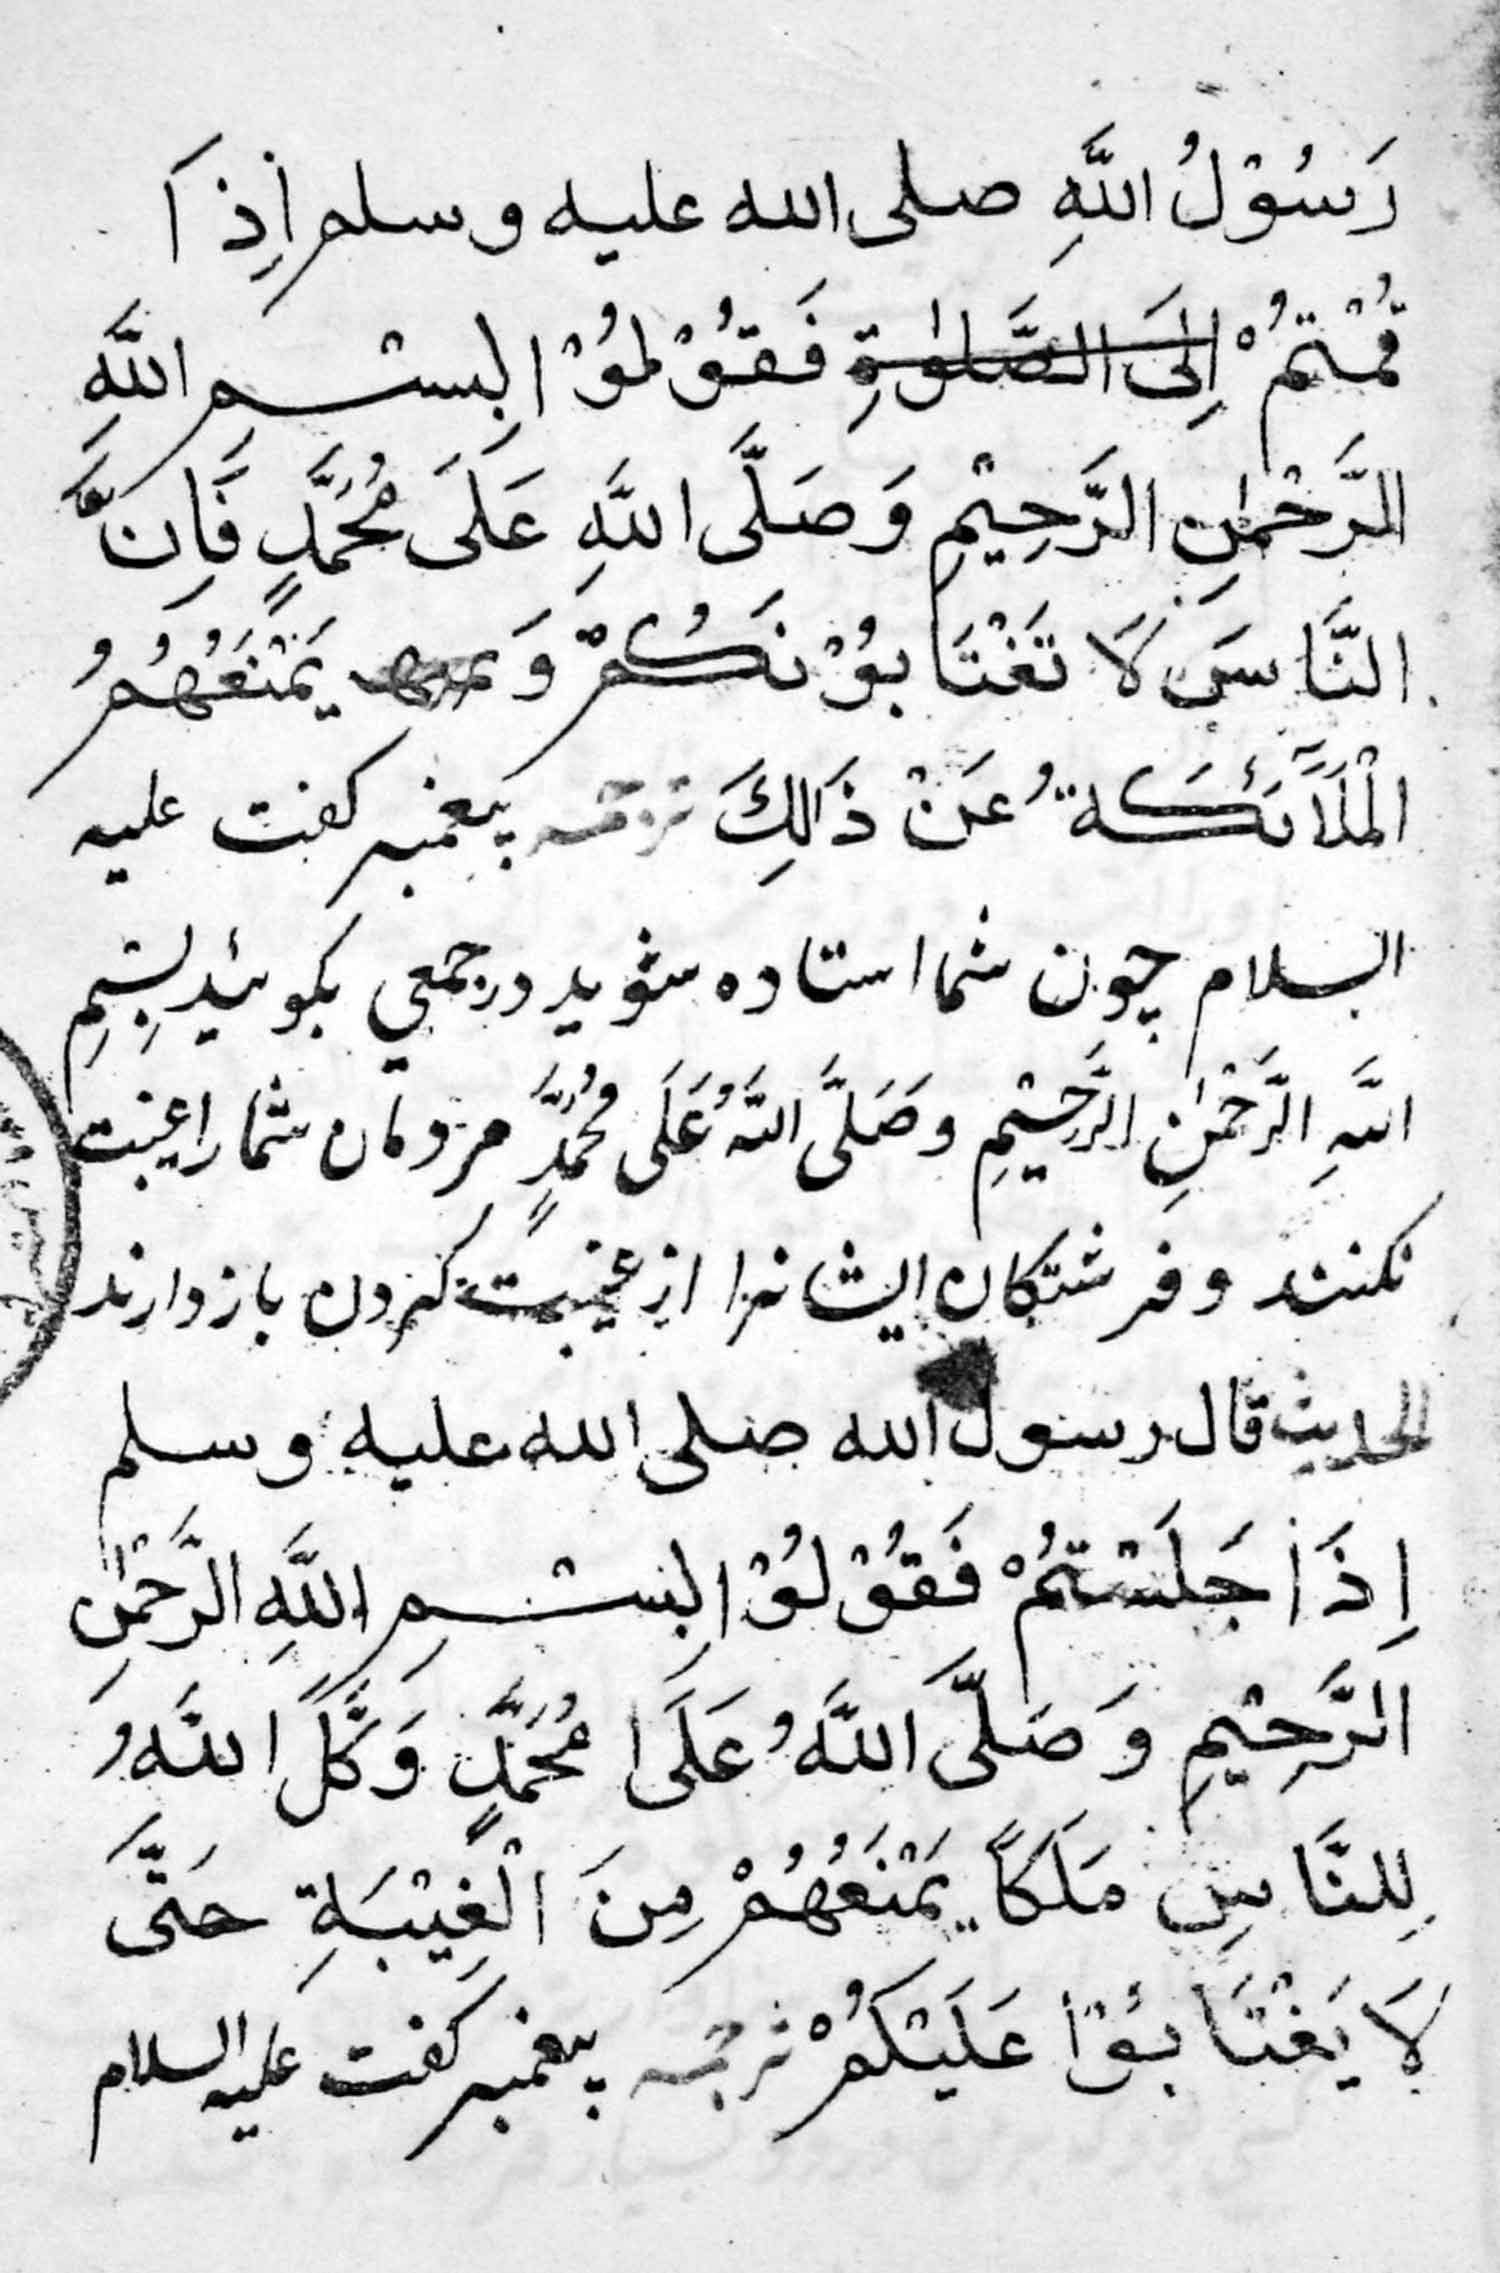 رَسُوْلُ اللَّهِ صلى الله عليه وسلم اِذَا
قُمْتُمْ اِلَى الصَّلٰوةِ فَقُوْلُوْا بِسْمِ اللَّهِ
الرَّحْمٰنِ الرَّحِيْمِ وَصَلَّى اللَّهِ عَلَى مُحَمَّدٍ فَاِنَّ
النَّاسَ لَا تَغْتَابُوْنَكُمْ وَ يَمْنَعُهُمُ
الْمَلَآئِكَةُ عَنْ ذَالِكَ ترجمه پیغمبر کفت علیه
السلام چون شما استاده شوید در جمعی بکوئید بِسْمِ
اللَّهِ الرَّحْمٰنِ الرَّحِيْمِ وَصَلَّى اللَّهُ عَلَى مُحَمَّدٍ مردمان شما را غیبت
نکنند و فرشتکان ایشانرا از غیبت کردن بازدارند
الحدیث قال رسول الله صلى الله عليه وسلم
اِذَا جَلَسْتُمْ فَقُوْلُوْا بِسْمِ اللَّهِ الرَّحْمٰنِ
الرَّحِيْمِ وَصَلَّى اللَّهُ عَلَى مُحَمَّدٍ وَكَّلَ اللَّهُ
لِلنَّاسِ مَلَكاً يَمْنَعُهُمْ مِنَ الْغِيْبَةِ حَتَّى
لَا يَغْتَابُوْا عَلَيْكُمْ ترجمه پیغمبر کفت علیه السلام